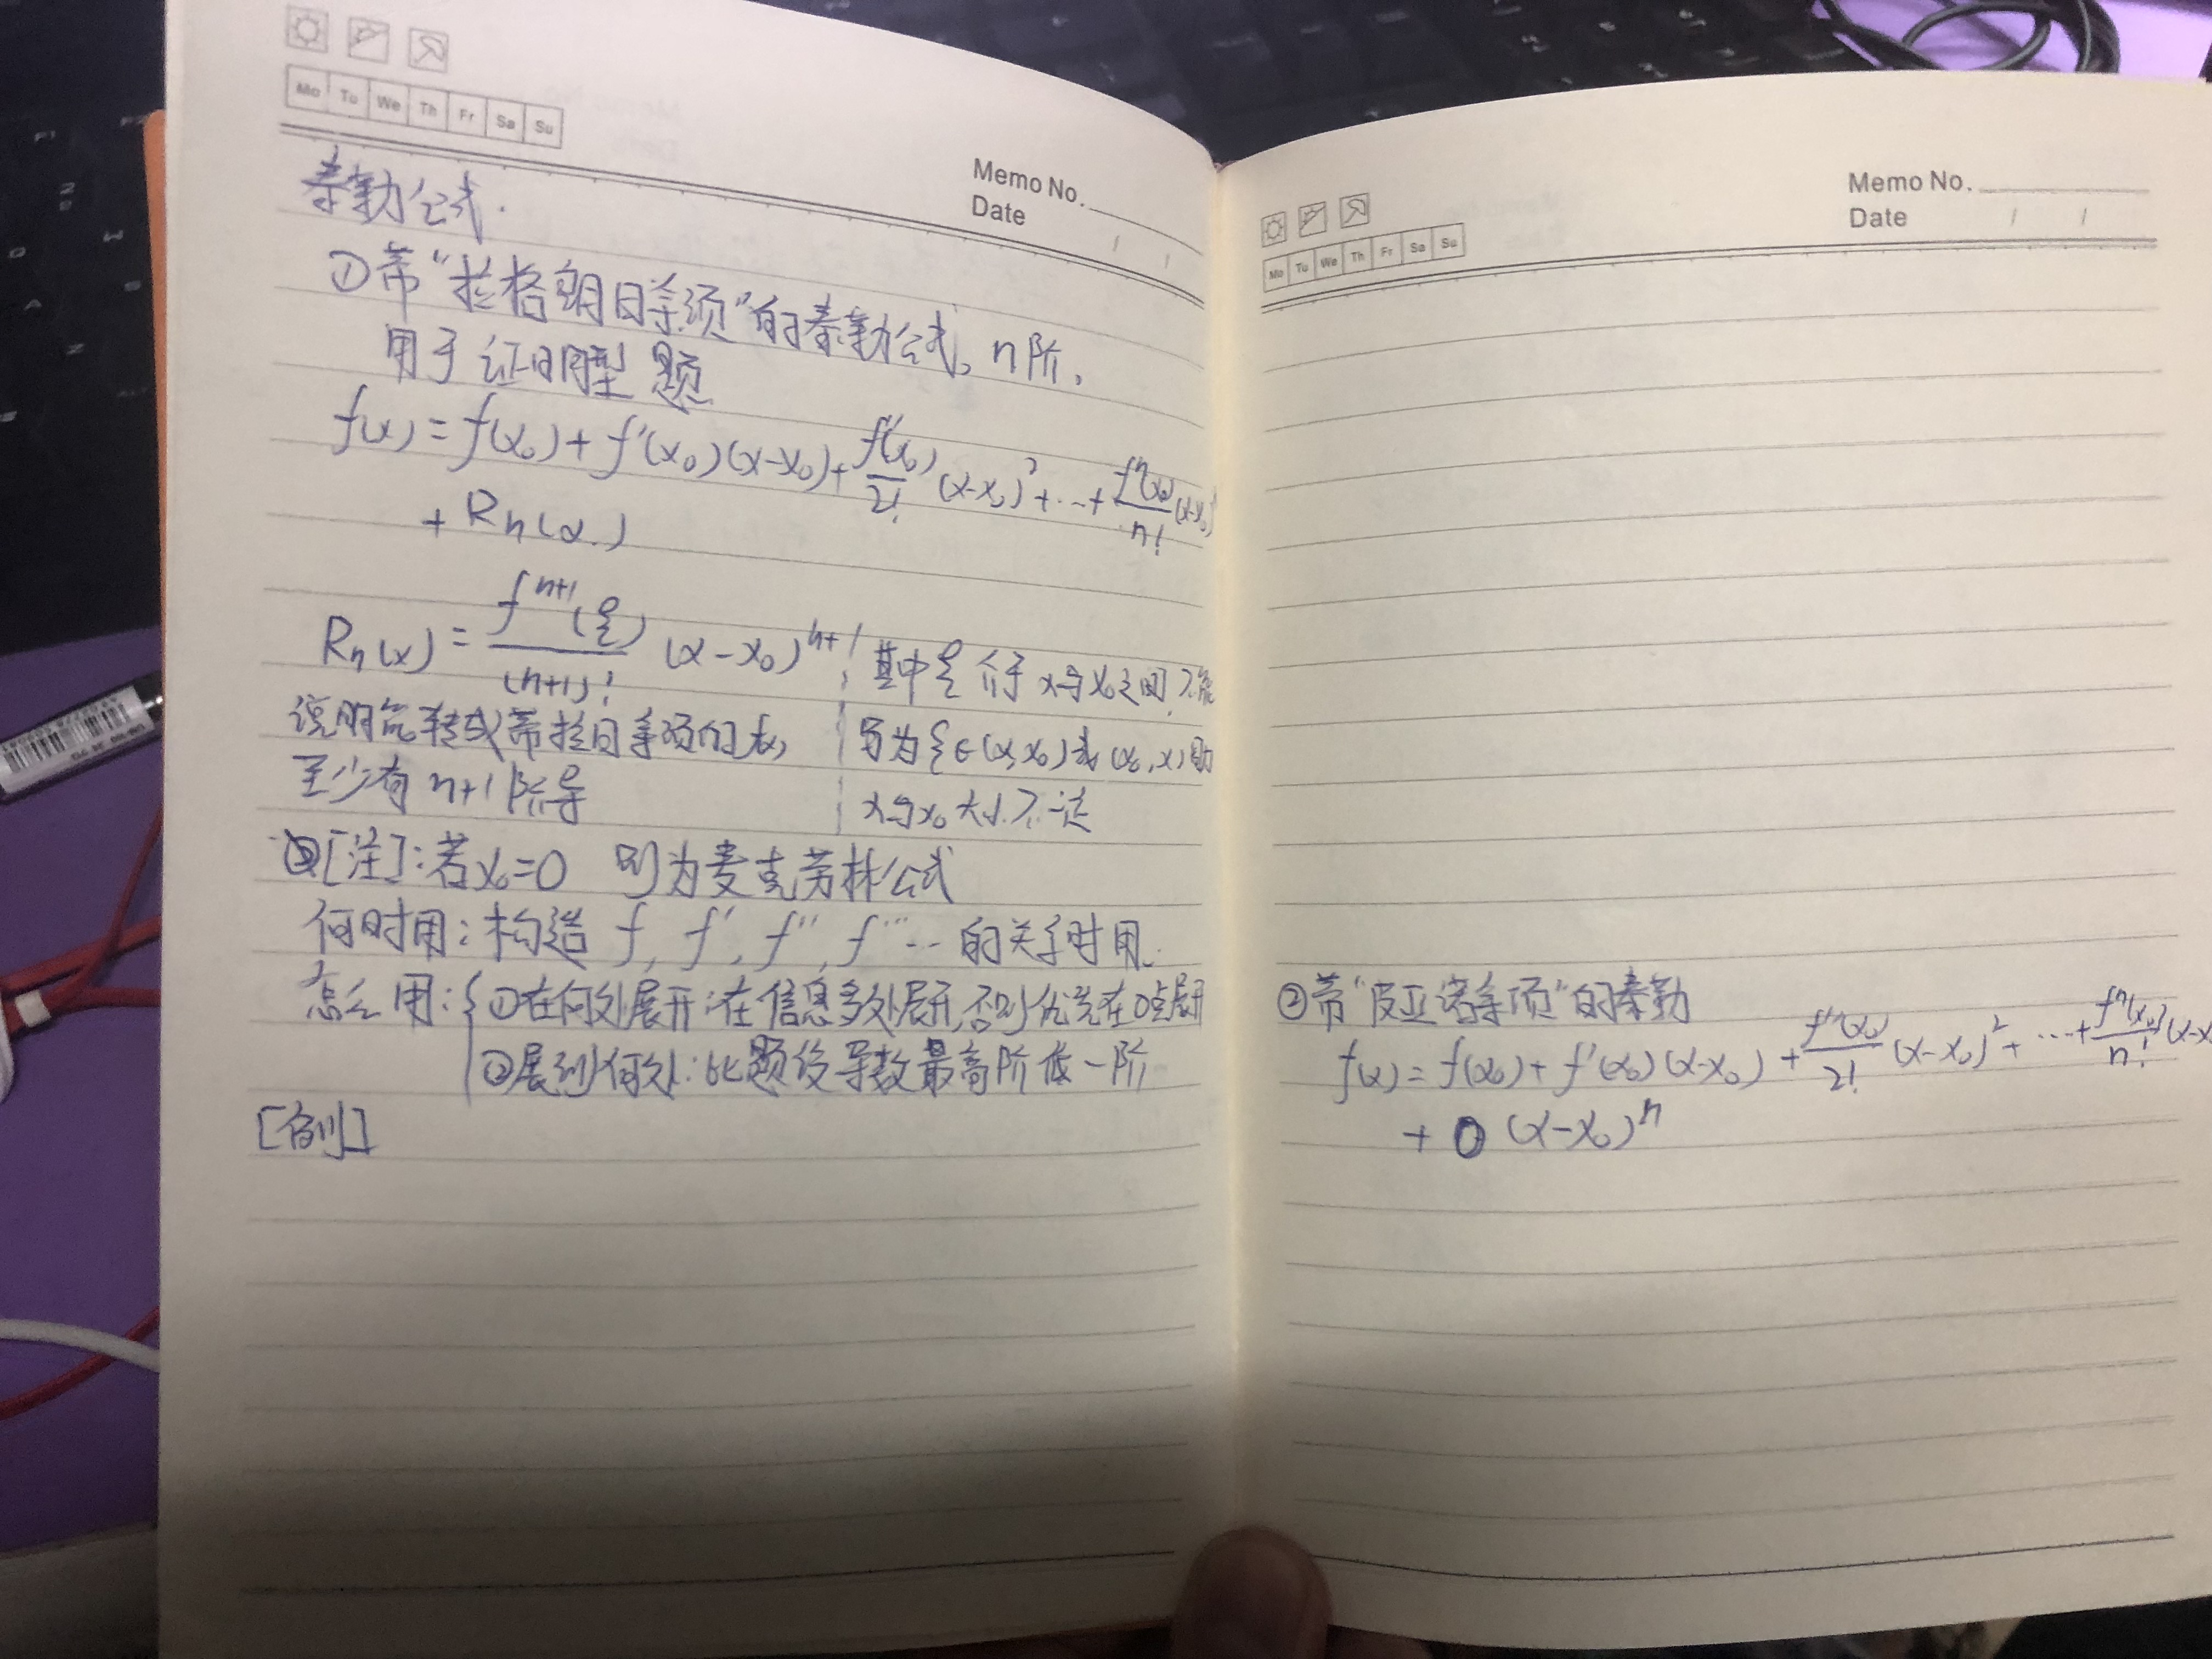 Mo Tu We Th Fr Sa Su
Memo No.
Date / /
泰勒公式.
①带“拉格朗日余项”的泰勒公式, n阶,
用于证明型题
f(x) = f(x₀) + f'(x₀)(x-x₀) + f''(x₀)/2! (x-x₀)² + ... + fⁿ(x₀)/n! (x-x₀)
+ Rn(x)
Rn(x) = fⁿ⁺¹(ξ)/(n+1)! (x-x₀)ⁿ⁺¹
其中ξ介于x与x₀之间, 不能
写为ξ∈(x,x₀)或(x₀,x)
x与x₀大小不一定
带拉日余项的
至少有n+1阶导
[注]:若x₀=0 则为麦克劳林公式
何时用:构造 f, f', f'', f'''... 的关系时用.
怎么用:①在何处展开:在信息多处展开,否则优先在0点展开
②展到何处:比题设导数最高阶低一阶
[例]
Mo Tu We Th Fr Sa Su
Memo No.
Date / /
②带“皮亚诺余项”的泰勒
f(x) = f(x₀) + f'(x₀)(x-x₀) + f''(x₀)/2! (x-x₀)² + ... + fⁿ(x₀)/n! (x-x
+ o (x-x₀)ⁿ